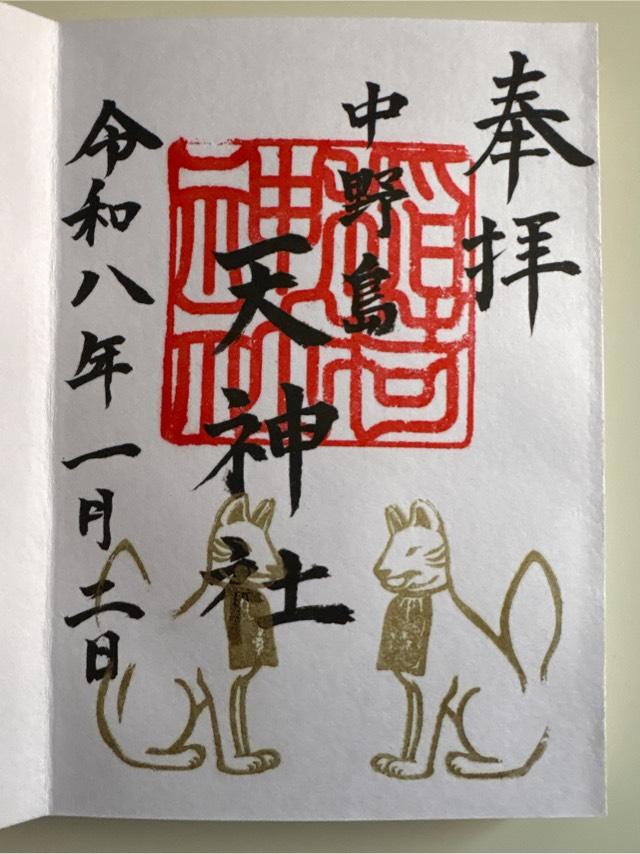 奉拝
中野島
天神社
稲荷神社
令和八年一月二日